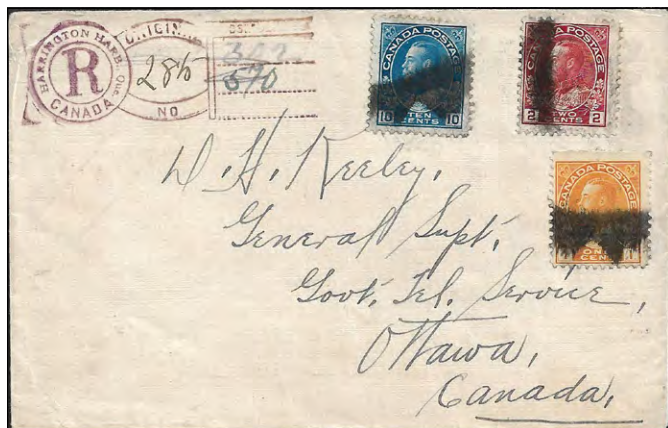 HARRINGTON HARB Que
R
CANADA
ORIGIN
285
NO
307
570
CANADA POSTAGE
10 TEN CENTS 10
CANADA POSTAGE
2 TWO CENTS 2
CANADA POSTAGE
ONE CENT
D. H. Keeley,
General Supt.
Govt. Tel. Service,
Ottawa,
Canada,